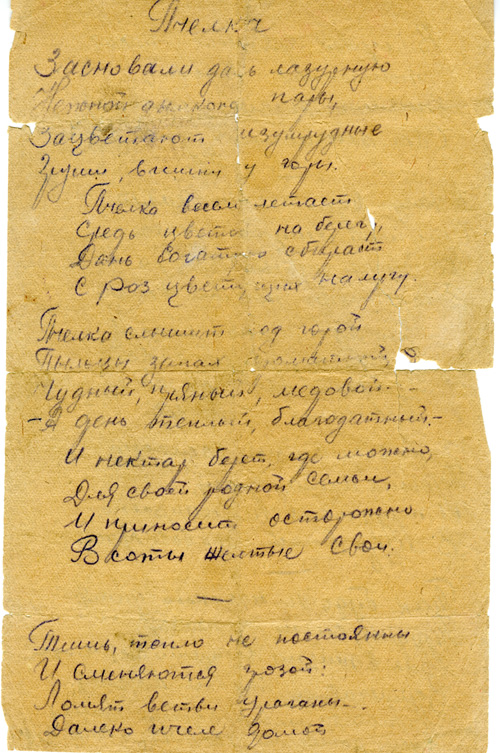 Пчелка
Засновали даль лазурную
пары,
Зацветают изумрудные
Груши, вишни у горы.
Пчелка весел летает
Средь цвета на берегу,
Дань богатую сбирает
С роз цветущих на лугу.
Пчелка слышит под горой
Пыльцы запах
Чудный, пряный, медовой. -
- А день теплый, благодатный. -
И нектар берет, где можно,
Для своей родной семьи,
И приносит осторожно
В соты желтые свои.
—
Тишь, тепло не постоянны
И сменяются грозой:
Ломят ветви ураганы. -
Далеко пчеле домой